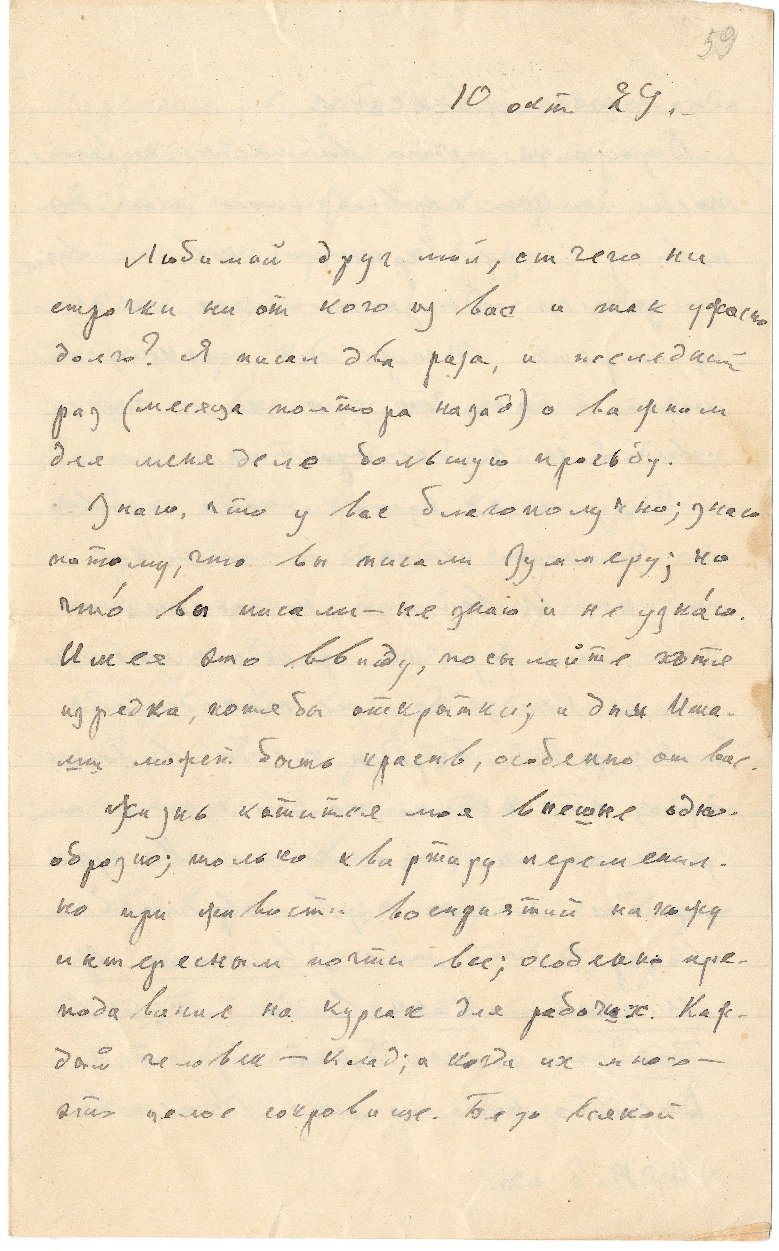 59
10 окт 29.
Любимый друг мой, отчего ни
строчки ни от кого из вас и так ужасно
долго? Я писал два раза, и последний
раз (месяца полтора назад) о важном
для меня деле большую просьбу.
Знаю, что у вас благополучно; знаю
потому, что вы писали Зуммеру; но
что́ вы писали — не знаю и не узна́ю.
Имея это ввиду, посылайте хотя
изредка, хотя бы открытки; и дым Ита-
лии может быть красив, особенно от вас.
Жизнь катится моя внешне одно-
образно; только квартиру переменил.
Но при живости восприятий нахожу
интересным почти все; особенно пре-
подавание на курсах для рабочих. Каж-
дый человек — клад; а когда их много —
это целое сокровище. Безо всякой